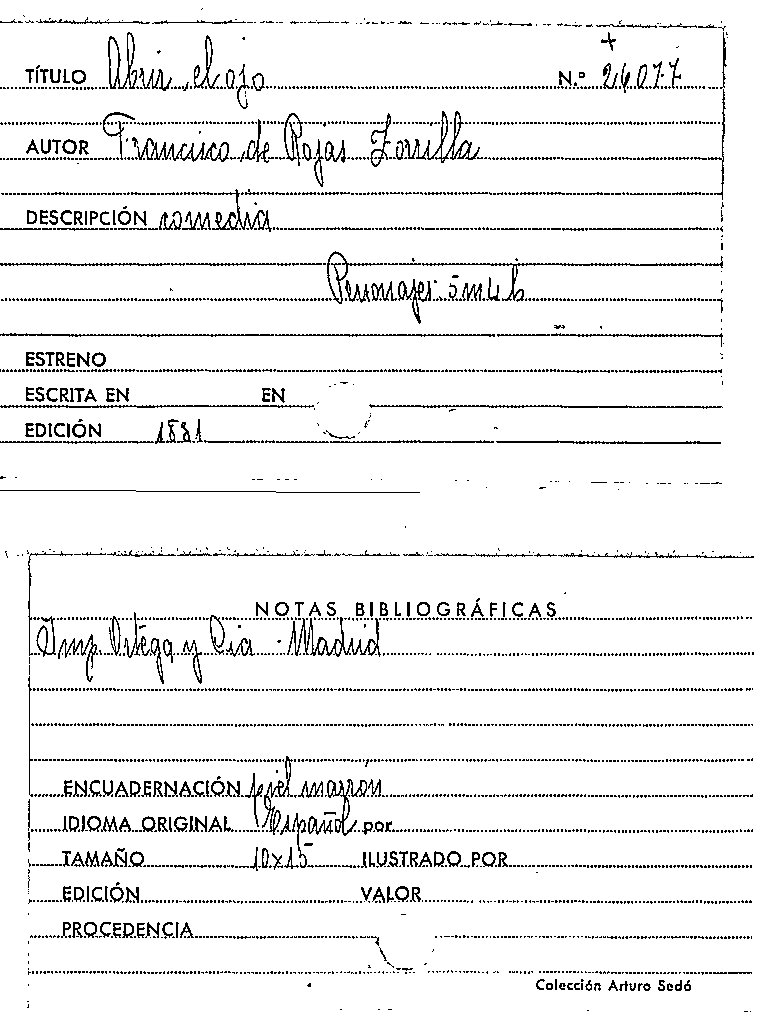 +
TÍTULO Abrir el ojo N.º 26077
AUTOR Francisco de Rojas Zorrilla
DESCRIPCIÓN comedia
Personajes 5 m 4 h
ESTRENO
ESCRITA EN EN
EDICIÓN 1881
NOTAS BIBLIOGRÁFICAS
Imp Ortega y Cia - Madrid
ENCUADERNACIÓN piel marrón
IDIOMA ORIGINAL Español por
TAMAÑO 10x15 ILUSTRADO POR
EDICIÓN VALOR
PROCEDENCIA
Colección Arturo Sedó